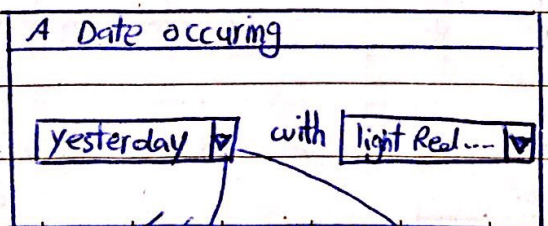 A Date occuring
yesterday with light Red....